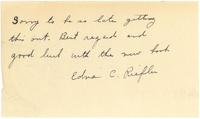 Sorry to be so late getting
this out. Best regard and
good luck with the new book
Edna C. Riefler